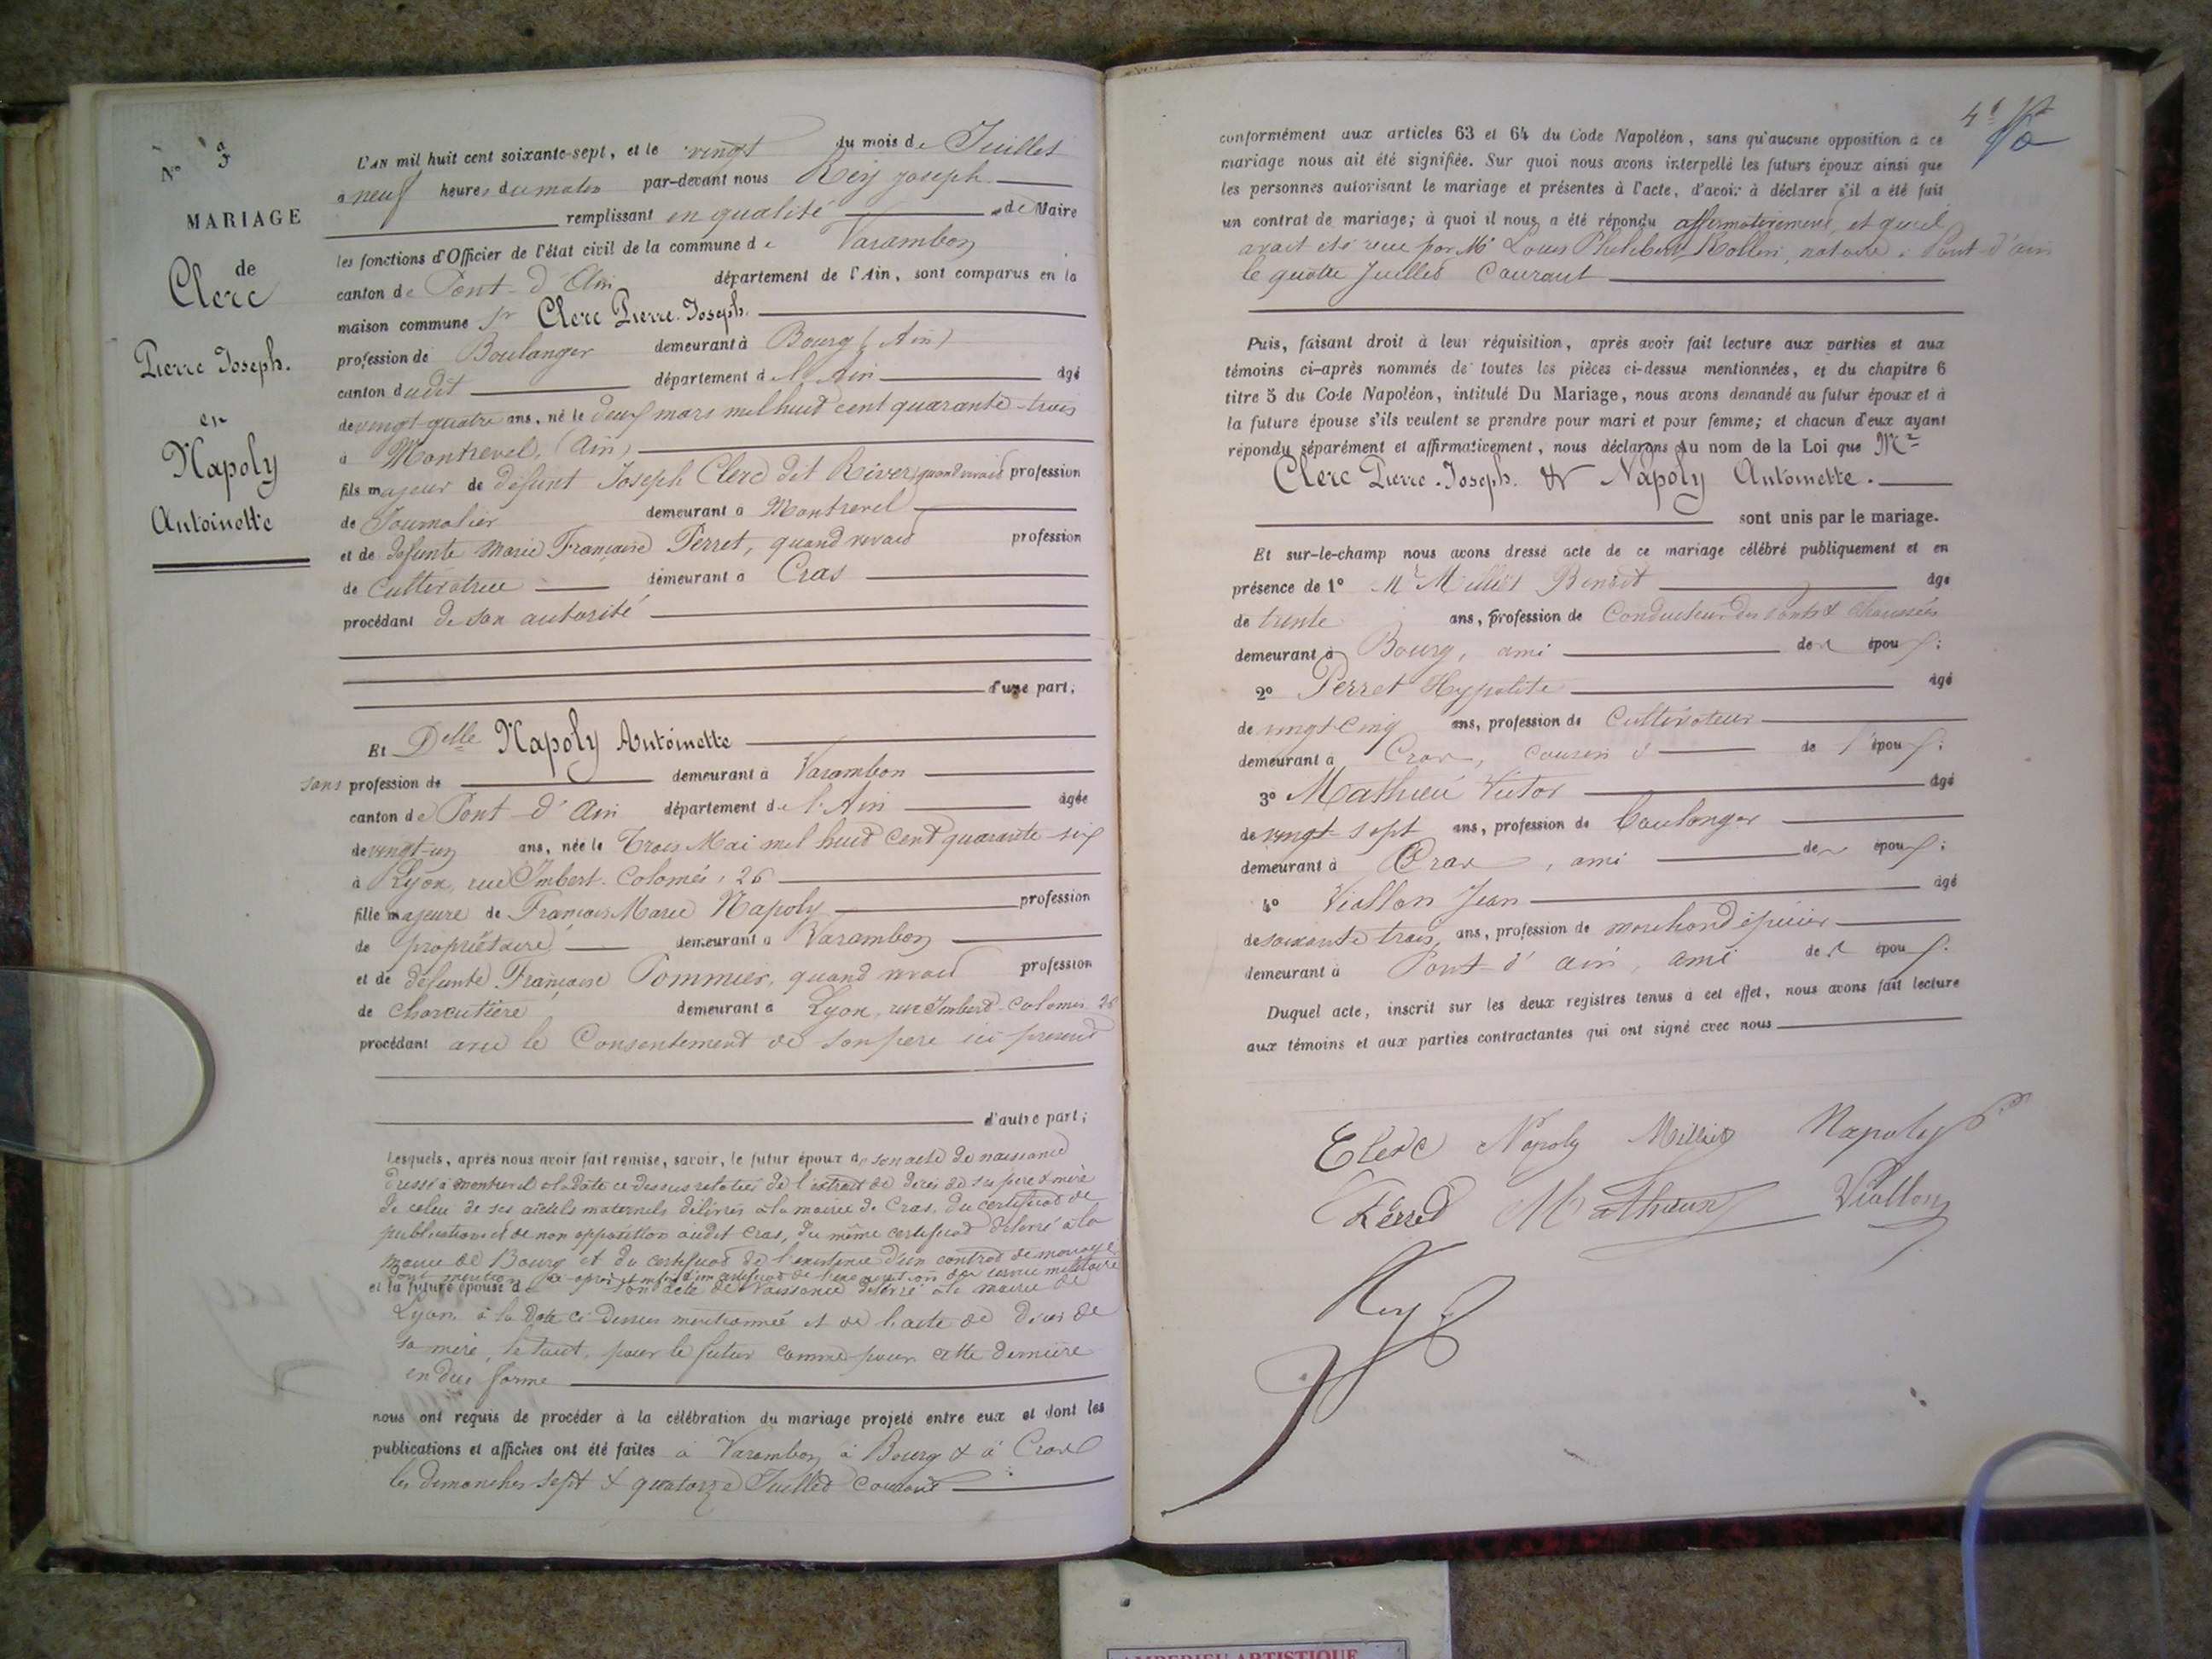 N° 3
MARIAGE
de
Clerc
Pierre Joseph.
et
Napoly
Antoinette
L'AN mil huit cent soixante-sept, et le vingt du mois de Juillet
à neuf heures du matin par-devant nous Rey Joseph
remplissant en qualité de Maire
les fonctions d'Officier de l'état civil de la commune de Varambon
canton de Pont-d'Ain département de l'Ain, sont comparus en la
maison commune Sr Clerc Pierre-Joseph.
profession de Boulanger demeurant à Bourg (Ain)
canton dudit département de l'Ain âgé
de vingt-quatre ans, né le deux mars mil huit cent quarante-trois
à Montrevel, (Ain)
fils majeur de défunt Joseph Clerc dit Rivery quand vivait profession
de Journalier demeurant à Montrevel
et de défunte Marie Françoise Perret, quand vivait profession
de Cultivatrice demeurant à Cras
procédant de son autorité
d'une part;
Et Delle Napoly Antoinette
sans profession de demeurant à Varambon
canton de Pont-d'Ain département de l'Ain âgée
de vingt-un ans, née le Trois Mai mil huit cent quarante-six
à Lyon, rue Imbert-Colomès, 26
fille majeure de François Marie Napoly profession
de propriétaire demeurant à Varambon
et de défunte Françoise Pommier, quand vivait profession
de charcutière demeurant à Lyon, rue Imbert-Colomès 26
procédant avec le Consentement de son père ici présent
d'autre part;
Lesquels, après nous avoir fait remise, savoir, le futur époux de son acte de naissance
dressé à Montrevel à la date ci-dessus relatée de l'extrait de décès de ses père & mère
de celui de ses aïeuls maternels délivrés à la mairie de Cras, du certificat de
publication et de non opposition audit Cras, du même certificat délivré à la
mairie de Bourg et du certificat de l'existence d'un contrat de mariage
dont mention ci-après et enfin d'un certificat de l'exemption du service militaire
et la future épouse de son acte de naissance délivré à la mairie de
Lyon à la date ci-dessus mentionnée et de l'acte de décès de
sa mère, le tout, pour le futur comme pour cette dernière
en due forme
nous ont requis de procéder à la célébration du mariage projeté entre eux et dont les
publications et affiches ont été faites à Varambon, à Bourg & à Cras
les dimanches sept & quatorze Juillet Courant
conformément aux articles 63 et 64 du Code Napoléon, sans qu'aucune opposition à ce
mariage nous ait été signifiée. Sur quoi nous avons interpellé les futurs époux ainsi que
les personnes autorisant le mariage et présentes à l'acte, d'avoir à déclarer s'il a été fait
un contrat de mariage; à quoi il nous a été répondu affirmativement, et qu'il
avait été reçu par Me Louis Philibert Rollin, notaire à Pont-d'ain
le quatre Juillet Courant
Puis, faisant droit à leur réquisition, après avoir fait lecture aux parties et aux
témoins ci-après nommés de toutes les pièces ci-dessus mentionnées, et du chapitre 6
titre 5 du Code Napoléon, intitulé Du Mariage, nous avons demandé au futur époux et à
la future épouse s'ils veulent se prendre pour mari et pour femme; et chacun d'eux ayant
répondu séparément et affirmativement, nous déclarons Au nom de la Loi que Mr
Clerc Pierre-Joseph. & Napoly Antoinette.
sont unis par le mariage.
Et sur-le-champ nous avons dressé acte de ce mariage célébré publiquement et en
présence de 1° Mr Milliet Benoit âgé
de trente ans, profession de Conducteur des Ponts & Chaussées
demeurant à Bourg, ami de l' époux;
2° Perret Hyppolite âgé
de vingt-cinq ans, profession de Cultivateur
demeurant à Cras, cousin de l'époux;
3° Mathieu Victor âgé
de vingt-sept ans, profession de boulanger
demeurant à Cras, ami de l' époux;
4° Viallon Jean âgé
de soixante trois, ans, profession de marchand épicier
demeurant à Pont-d'ain, ami de l' époux.
Duquel acte, inscrit sur les deux registres tenus à cet effet, nous avons fait lecture
aux témoins et aux parties contractantes qui ont signé avec nous
Clerc Napoly Milliet Napoly
Perret Mathieu Viallon
Rey
AMBERIEU ARTISTIQUE